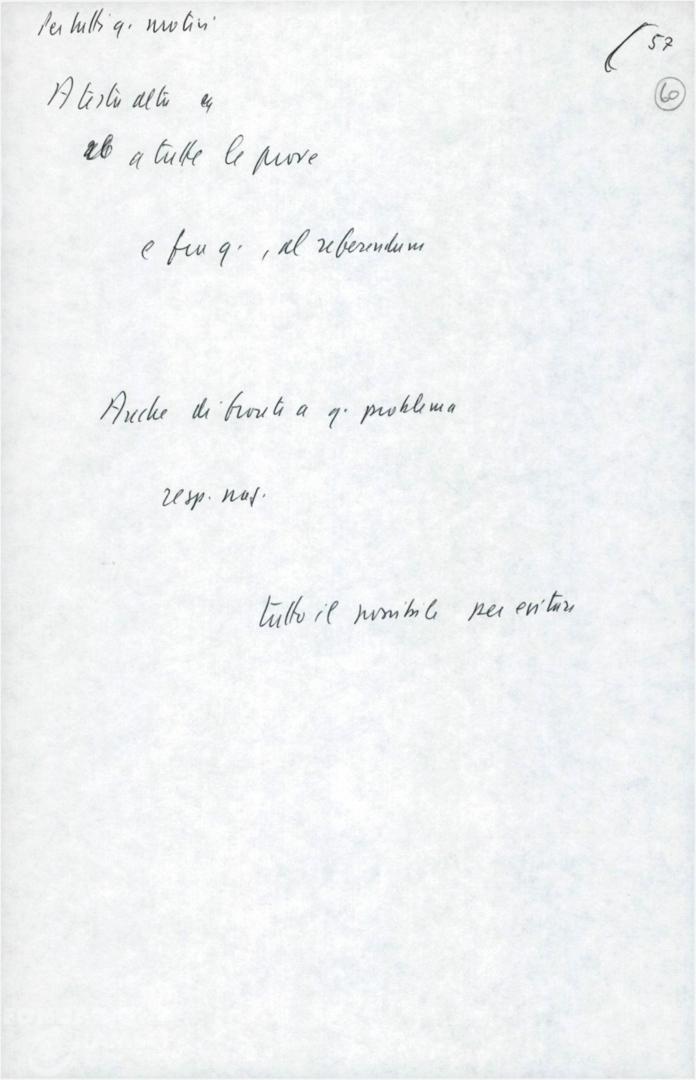 Per tutti q. motivi
57
60
A testa alta
a tutte le prove
e fra q. , al referendum
Anche di fronte a q. problema
resp. naz.
tutto il possibile per evitare